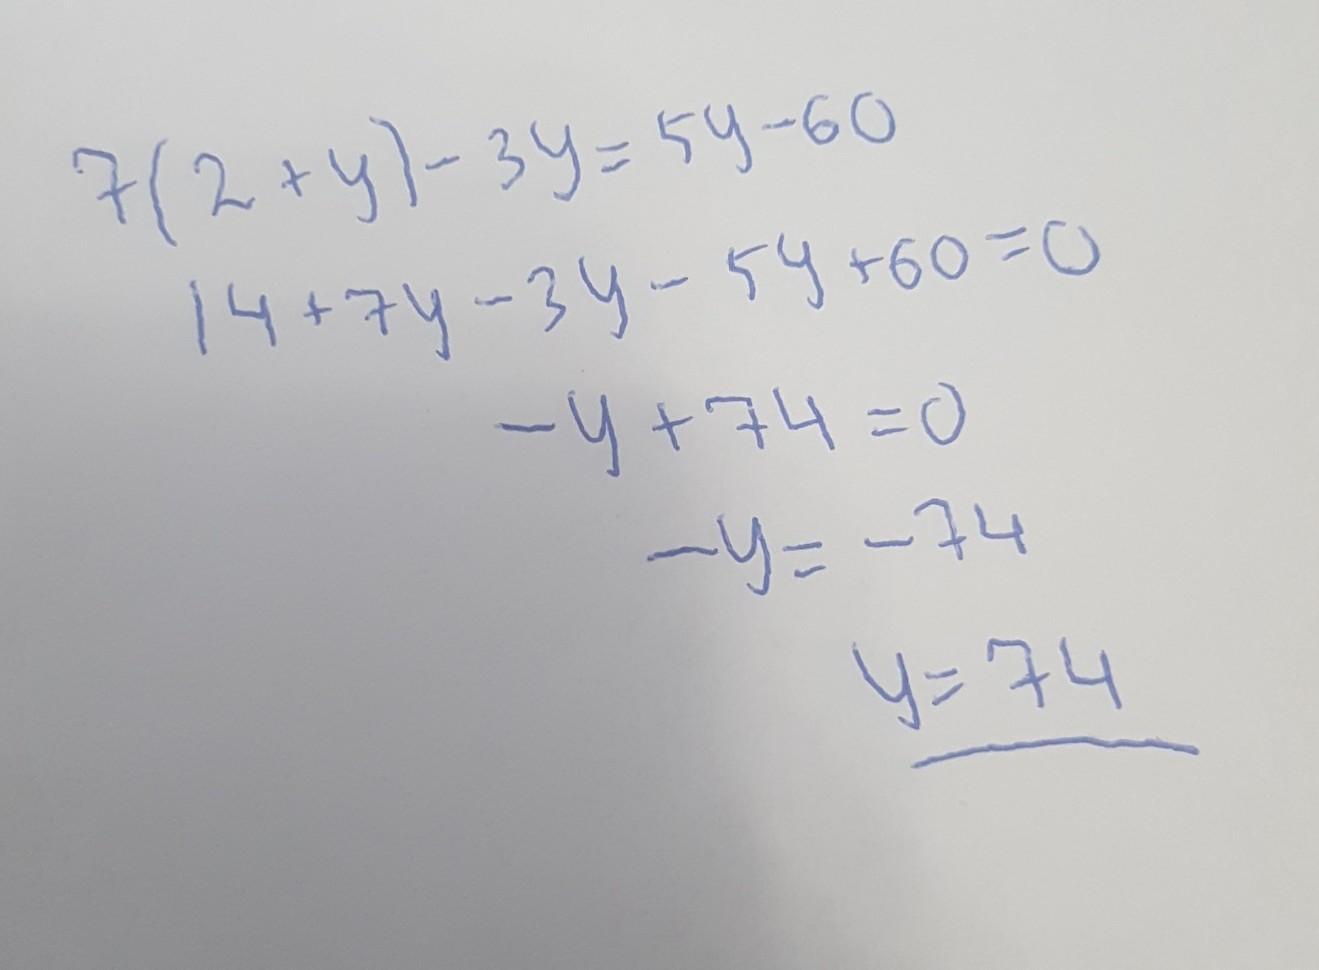 7(2+y)-3y=5y-60
14+7y-3y-5y+60=0
-y+74=0
-y=-74
y=74